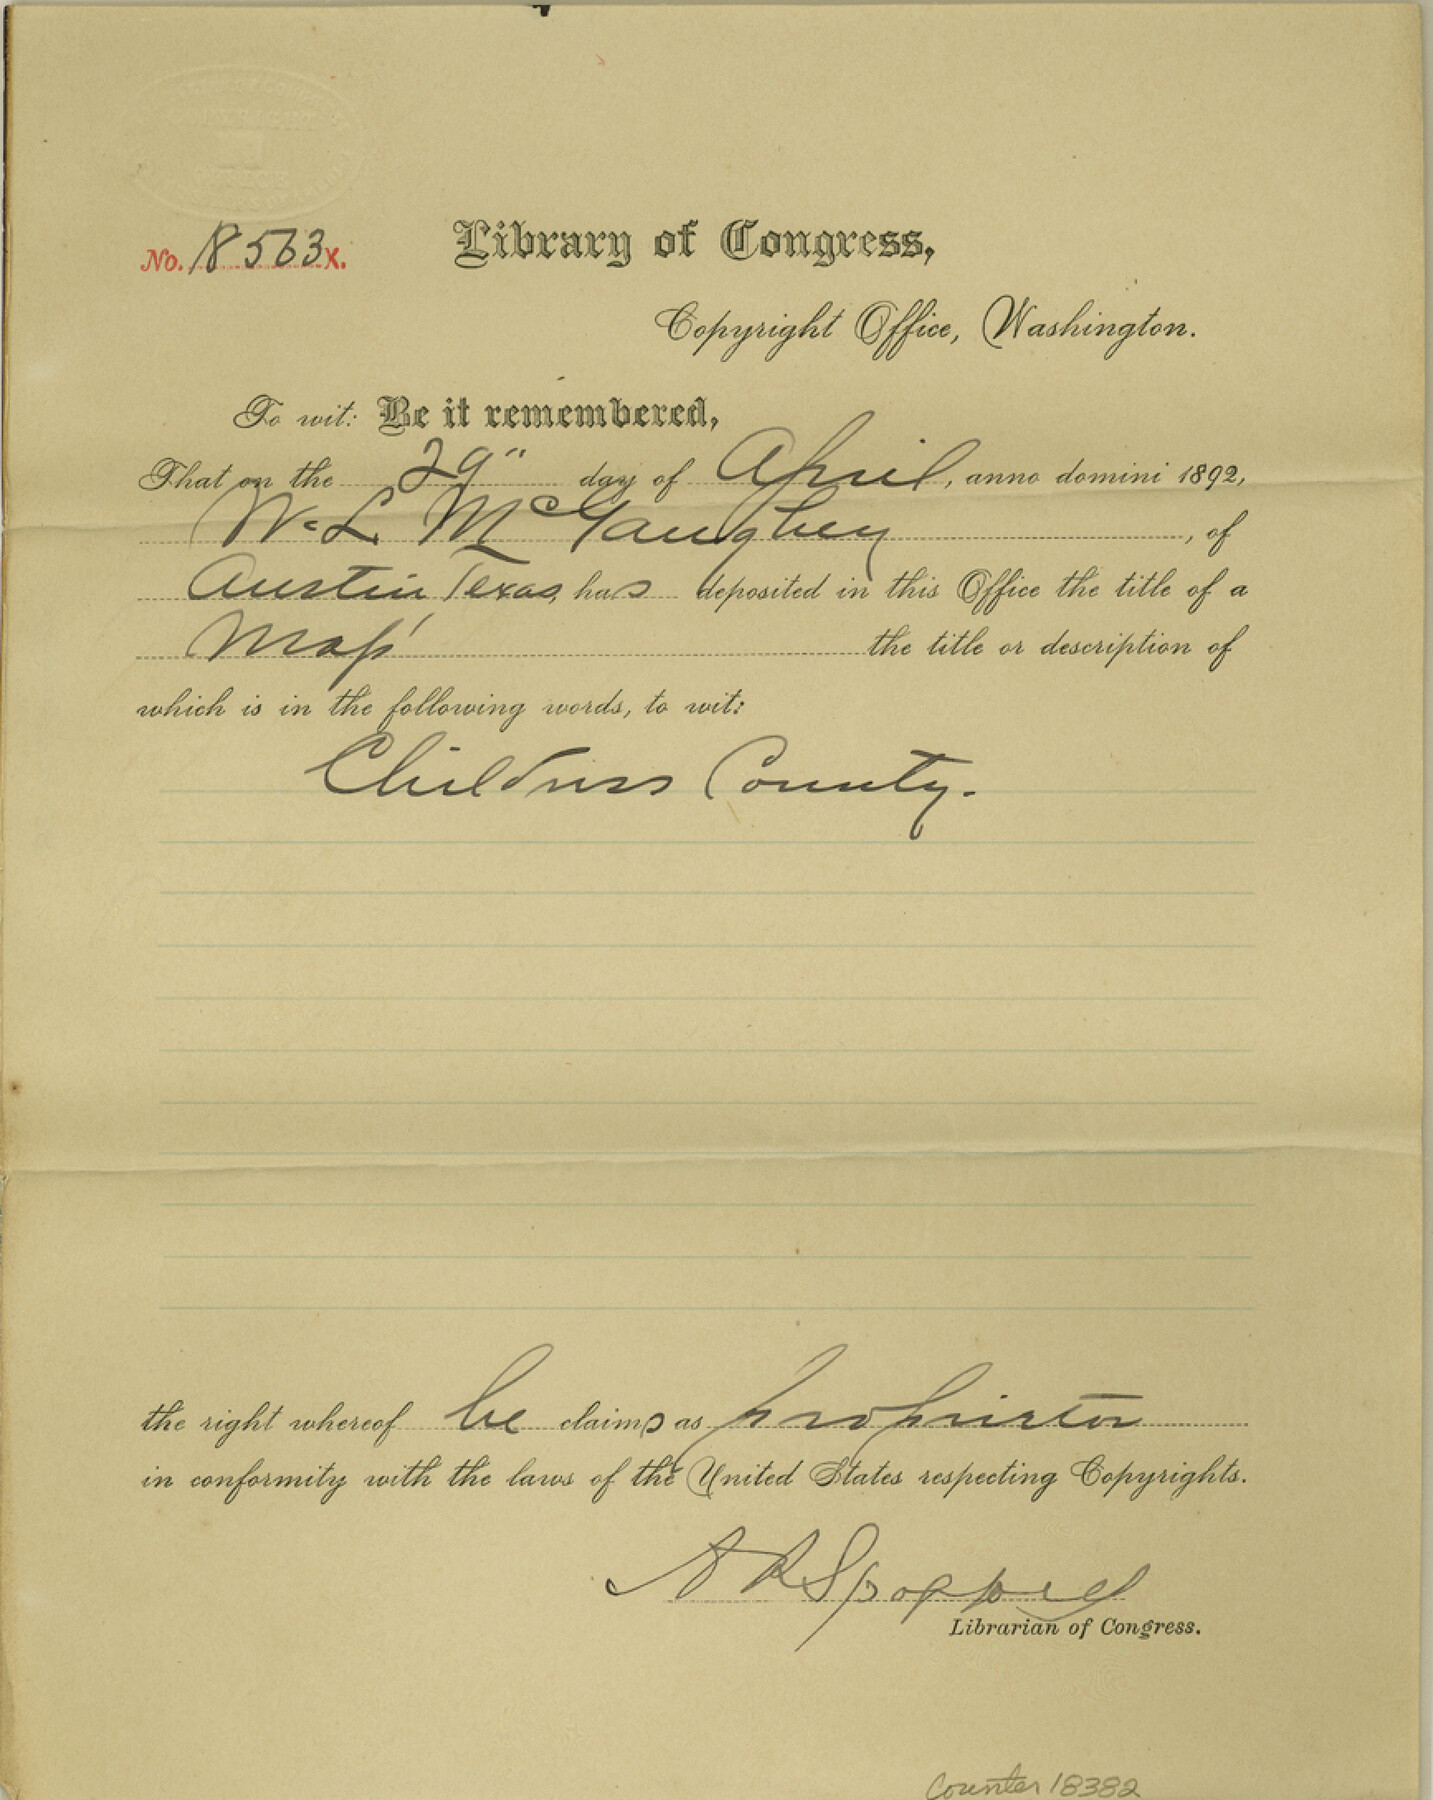 No. 18563 X.
Library of Congress,
Copyright Office, Washington.
To wit: Be it remembered,
That on the 29" day of April, anno domini 1892,
W. L. McGaughey, of
Austin Texas, has deposited in this Office the title of a
Map the title or description of
which is in the following words, to wit:
Childress County.
the right whereof he claims as proprietor
in conformity with the laws of the United States respecting Copyrights.
A R Spofford
Librarian of Congress.
Counter 18382